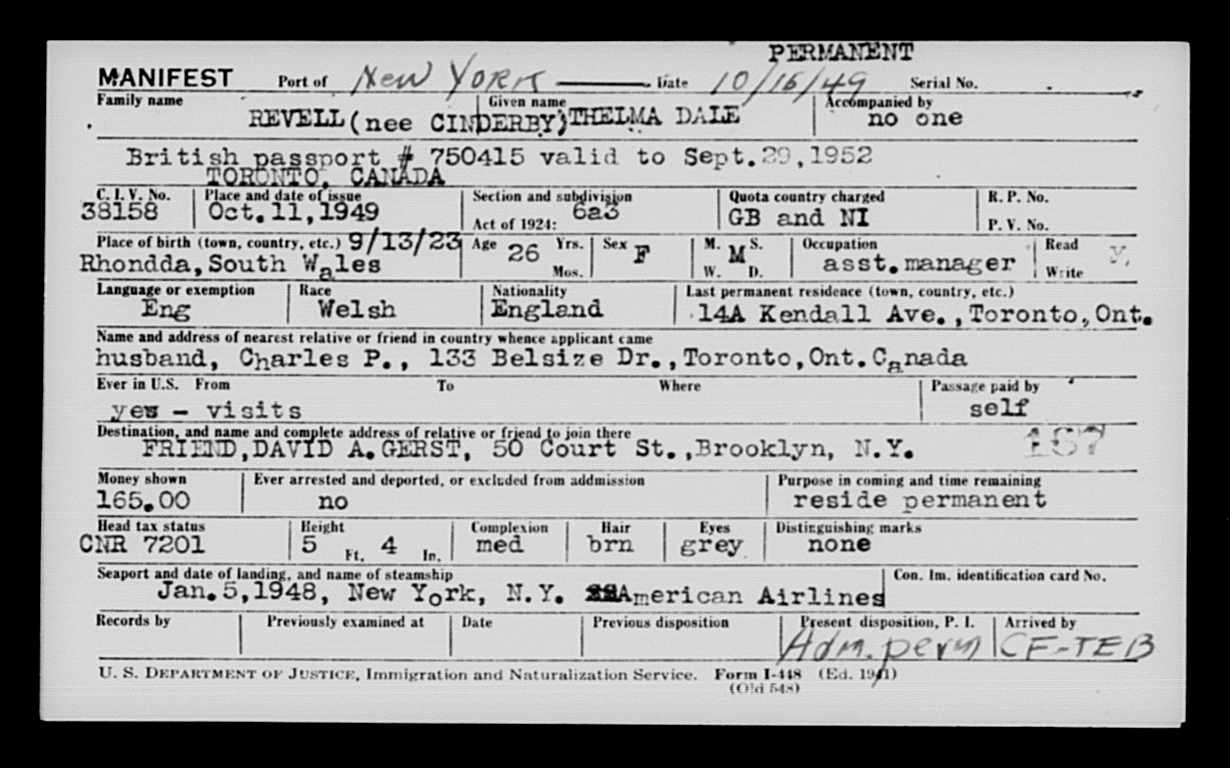 PERMANENT
MANIFEST Port of New York Date 10/16/49 Serial No.
Family name Given name Accompanied by
REVELL (nee CINDERBY) THELMA DALE no one
British passport # 750415 valid to Sept.29,1952
TORONTO, CANADA
C. I. V. No. Place and date of issue Section and subdivision Quota country charged R. P. No.
38158 Oct.11,1949 Act of 1924: 6a3 GB and NI P. V. No.
Place of birth (town, country, etc.) 9/13/23 Age 26 Yrs. Mos. Sex F M. S. W. D. M Occupation Read
Rhondda, South Wales asst.manager Write y.
Language or exemption Race Nationality Last permanent residence (town, country, etc.)
Eng Welsh England 14A Kendall Ave.,Toronto,Ont.
Name and address of nearest relative or friend in country whence applicant came
husband, Charles P., 133 Belsize Dr.,Toronto,Ont.Canada
Ever in U.S. From To Where Passage paid by
yes - visits self
Destination, and name and complete address of relative or friend to join there
FRIEND,DAVID A.GERST, 50 Court St.,Brooklyn, N.Y. 157
Money shown Ever arrested and deported, or excluded from addmission Purpose in coming and time remaining
165.00 no reside permanent
Head tax status Height Complexion Hair Eyes Distinguishing marks
CNR 7201 5 Ft. 4 In. med brn grey none
Seaport and date of landing, and name of steamship Con. Im. identification card No.
Jan.5,1948, New York, N.Y. American Airlines
Records by Previously examined at Date Previous disposition Present disposition, P. I. Arrived by
Adm. perm CF-TEB
U. S. DEPARTMENT OF JUSTICE, Immigration and Naturalization Service. Form I-448 (Ed. 1941)
(Old 548)